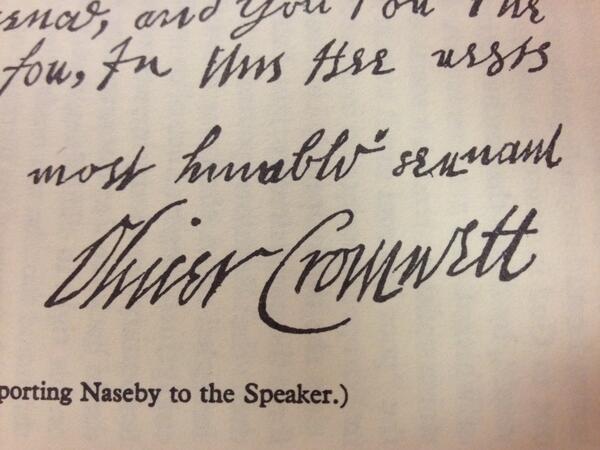 and you for the
for, In this Hee rests
most humble servant
Oliver Cromwell
porting Naseby to the Speaker.)